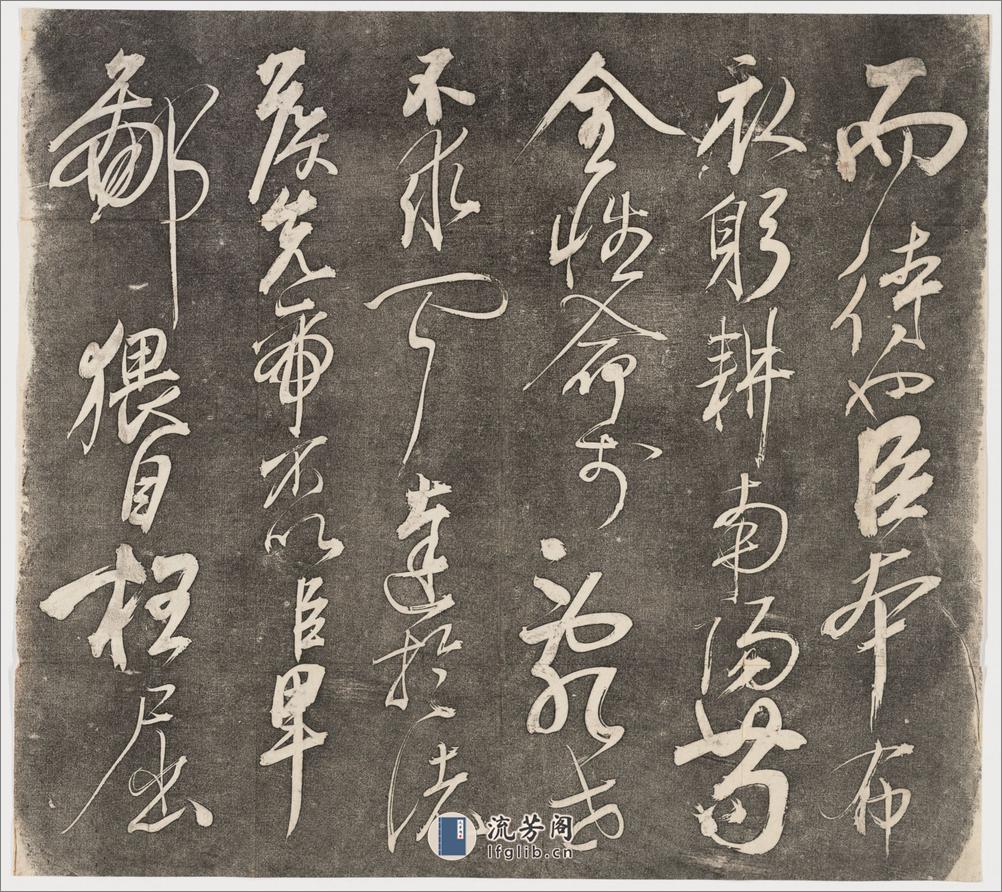 而待也臣本布
衣躬耕南陽苟
全性命於亂世
不求聞達於諸
侯先帝不以臣卑
鄙猥自枉屈
流芳阁
lfglib.cn